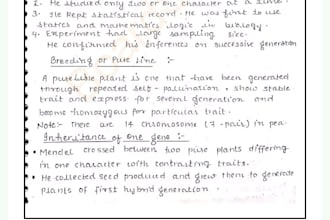 2. He studied only two or one character at a time.
3. He kept statistical record. He was first to use
statics and mathematics logic in biology.
4. Experiment had large sampling size.
He confirmed his inferences on successive generation
Breeding or Pure line :-
A pure line plant is one that have been generated
through repeated self - pollination . show stable
trait and express for several generation and
become homozygous for particular trait.
Note:- there are 14 chromosome (7 -pair) in pea.
Inheritance of One gene :-
• Mendel crossed between two pure plants differing
in one character with contrasting traits.
• He collected seed produced and grew them to generate
plants of first hybrid generation .